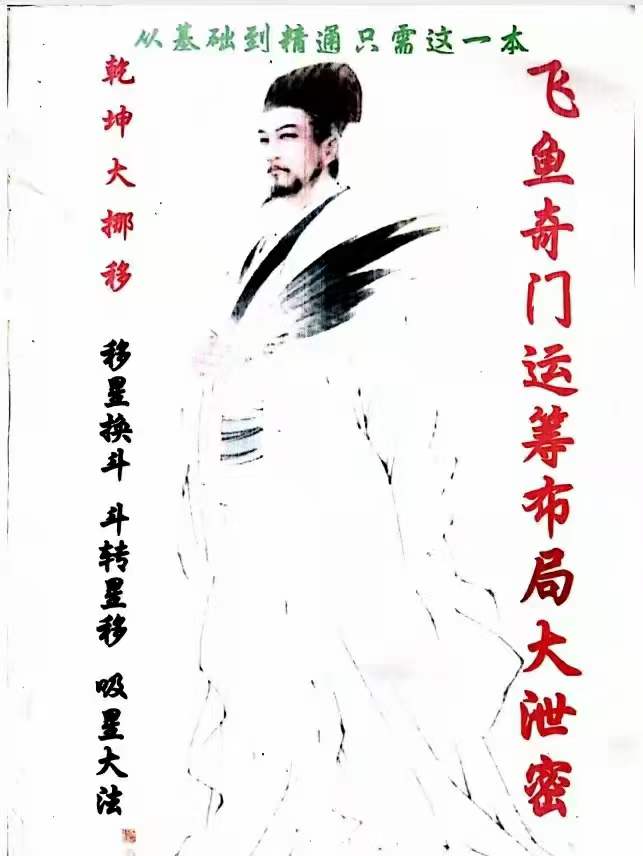 从基础到精通只需这一本
飞鱼奇门运筹布局大泄密
乾坤大挪移
移星换斗 斗转星移 吸星大法